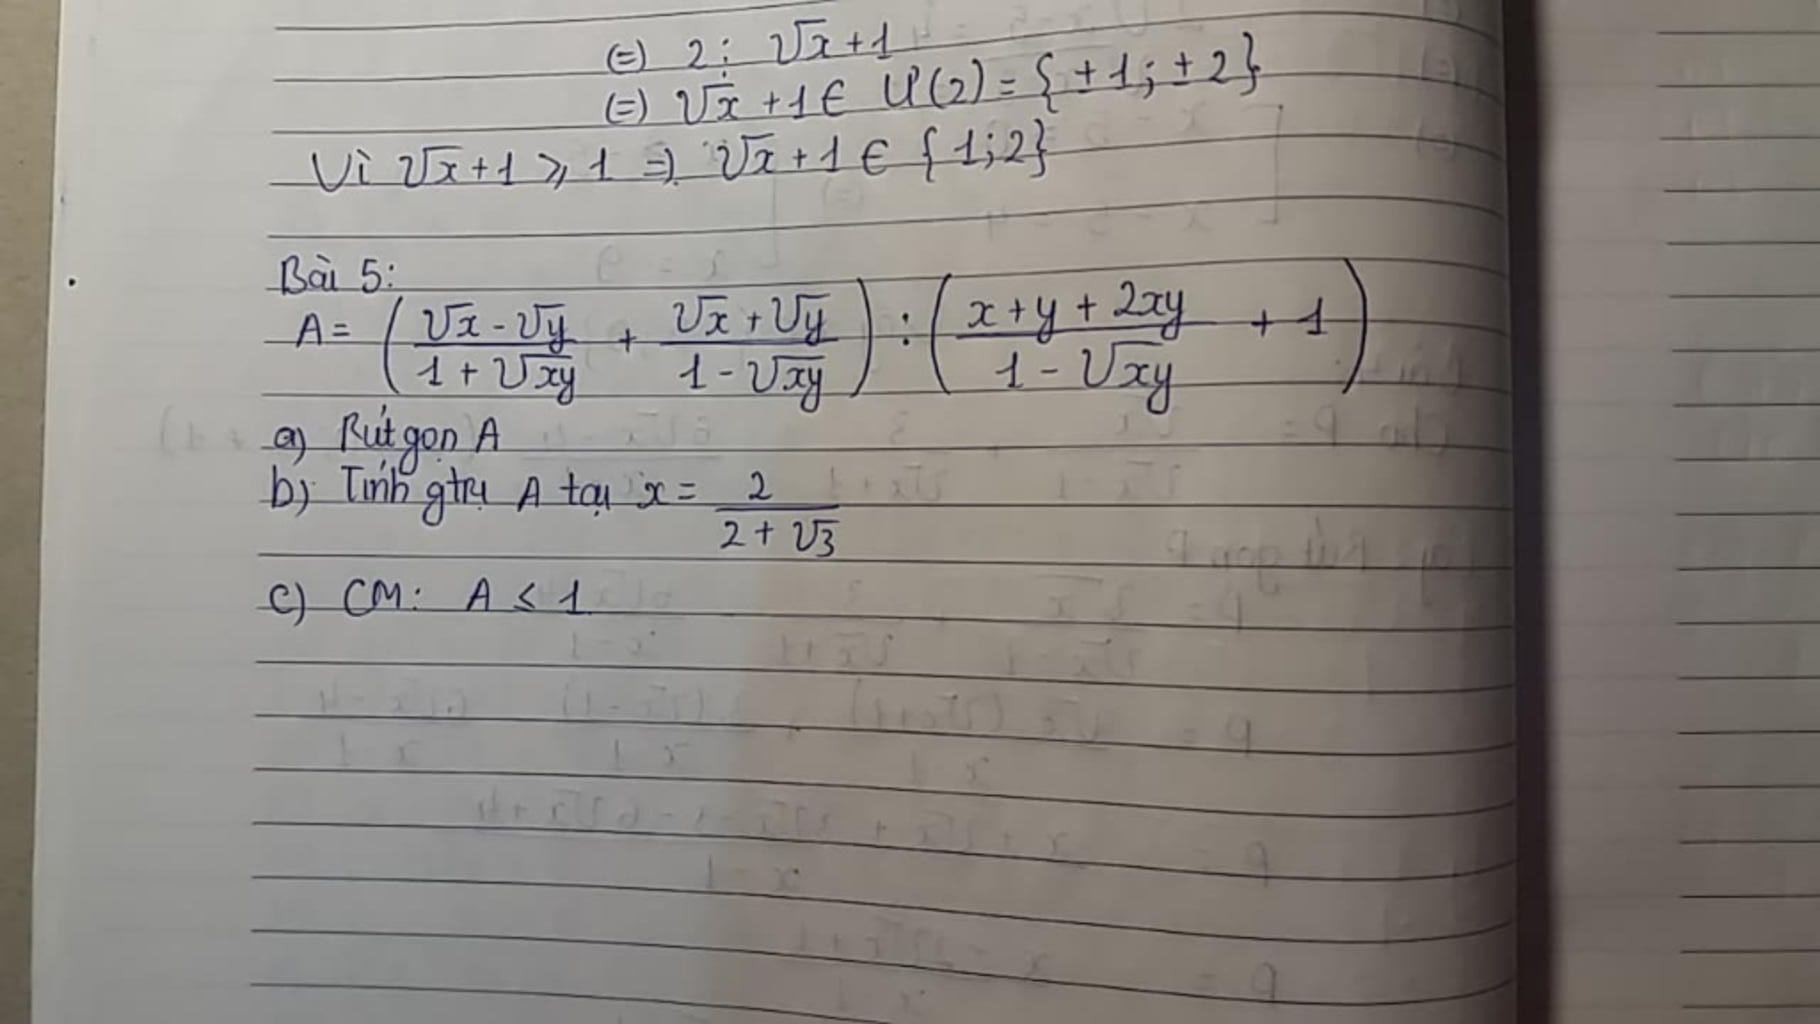 (=) 2 ⋮ √x + 1
(=) √x + 1 ∈ Ư(2) = {±1; ±2}
Vì √x + 1 ⩾ 1 =) √x + 1 ∈ {1;2}
Bài 5:
A = ( (√x - √y)/(1 + √xy) + (√x + √y)/(1 - √xy) ) : ( (x + y + 2xy)/(1 - √xy) + 1 )
a) Rút gọn A
b) Tính gtrị A tại x = 2/(2 + √3)
c) CM: A ≤ 1